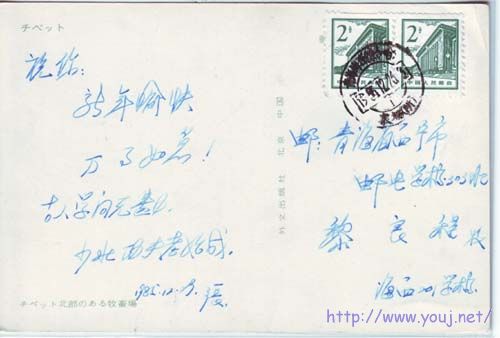 チベット
祝你:
新年愉快
万事如意!
古人学问无遗力,
少壮功夫老始成。
1985.12.23. 张
チベット北部のある牧畜場
外文出版社 北京 中国
2分
2分
中国人民邮政
邮:青海省西宁市
邮电学校303班
黎良程 收
海西州学校
http://www.youj.net/